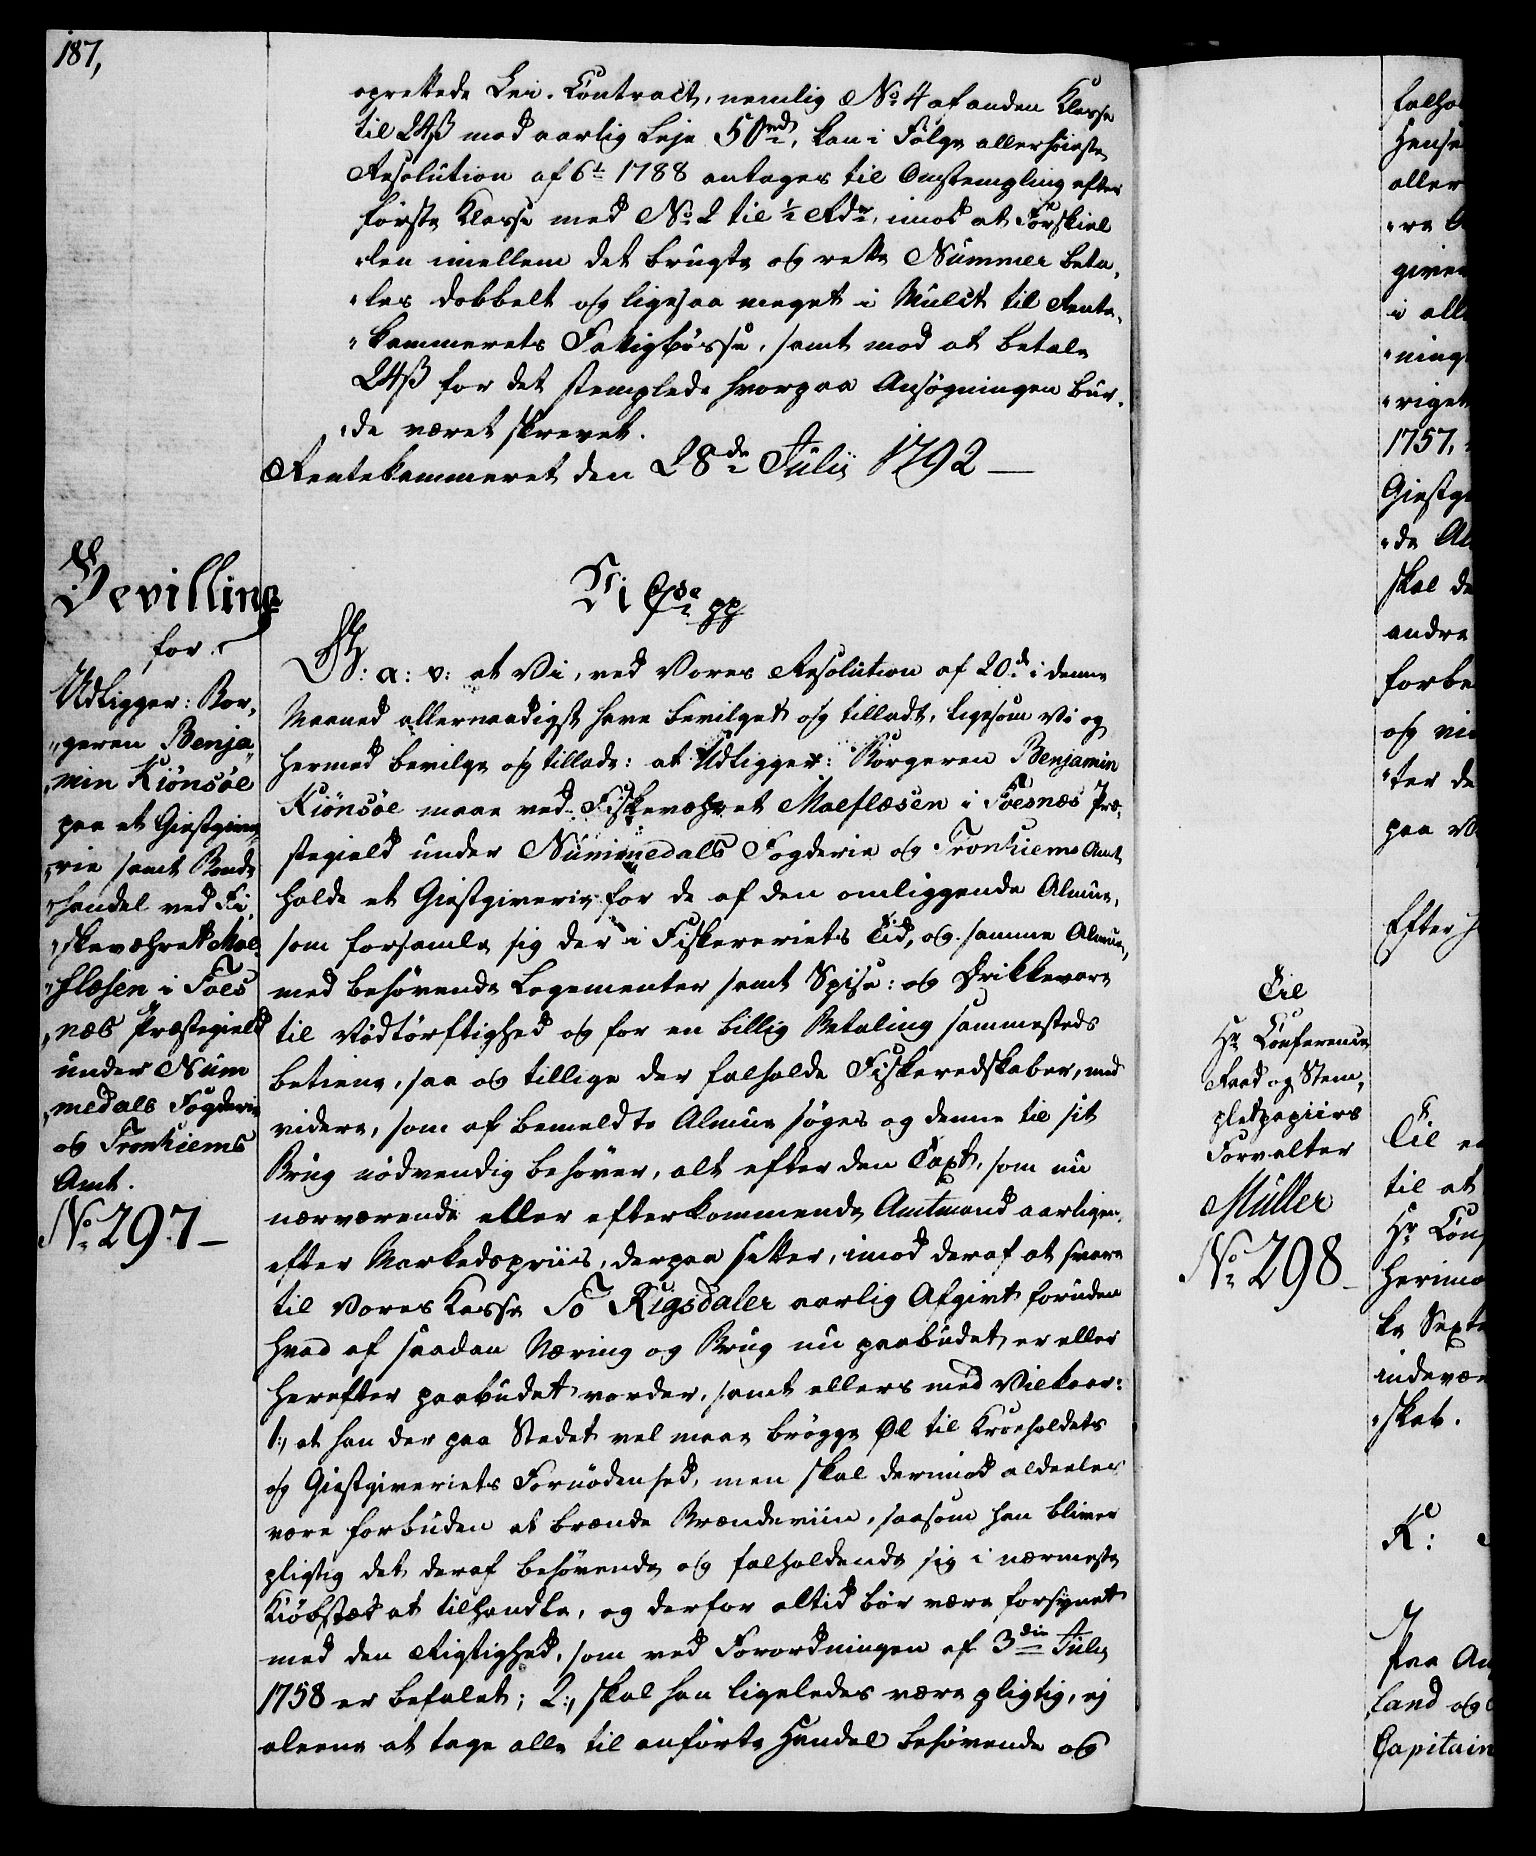 187,
oprettede Lei-Contract, nemlig No 4 af anden Klasse
til 24ß med aarlig Leje 50rd, kan i Følge allerhøieste
Resolution af 6t 1788 antages til Omstempling efter
første Klasse med No 2 til ½ Rdr, imod at Forskiel
„len imellem det brugte og rette Nummer beta„
„les dobbelt og ligesaa meget i Mulct til Rente„
„kammerets Fatigbøsse, samt mod at betale
24ß for det stemplede hvorpaa Ansøgningen bur„
„de været skrevet.
Rentekammeret den 28de Julii 1792 —
Bevilling
for
Udligger-Bor„
„geren Benja„
„min Kiönsöe
paa et Giestgive„
„rie samt Bonde
„handel ved Fi„
„skeværhet Mae„
„flæsen i Foes
„næs Præstegield
under Num
„medals Fogderie
og Tronhiems
Amt.
No 297 —
Vi C 7de pp
G: a: v: at Vi, ved Vores Resolution af 20de i denne
Maaned allernaadigst have bevilget og tilladt, ligesom Vi og
hermed bevilge og tillade: at Udligger-Borgeren Benjamin
Kiönsöe maae ved Fiskeværhet Maeflæsen i Foesnæs Præ„
stegield under Nummedals Fogderie og Tronhiems Amt
holde et Giestgiverie for de af den omliggende Almue,
som forsamle sig der i Fiskereriets Tid, og samme Almue,
med behøvende Logementer samt Spise- og Drikkevare
til Nödtørftighed og for en billig Betaling sammesteds
betiene, saa og tillige der falholde Fiskeredskaber, med
videre, som af bemeldte Almue søges og denne til sit
Brug nödvendig behøver, alt efter den Taxt, som nu
nærværende eller efterkommende Amtmand aarligen,
efter Markedspriis, derpaa setter, imod deraf at svare
til Vores Kasse To Rigsdaler aarlig Afgivt foruden
hvad af saadan Næring og Brug nu paabudet er eller
herefter paabudet vorder, samt ellers med Vilkaar:
1:, at han der paa Stedet vel maae brögge Øl til Kroeholdets
og Giestgiveriets Fornödenhed, men skal derimod aldeeles
være forbuden at brænde Brændeviin, saasom han bliver
pligtig det deraf behøvende og falholdende sig i nærmeste
Kiöbstæd at tilhandle, og derfor altid bör være forsynet
med den Rigtighed, som ved Forordningen af 3die Julij
1758 er befalet; 2:, skal han ligeledes være pligtig, ej
aleene at tage alle til anførte Handel behøvende og
Til
Hr Conference
Raad og Stem„
pletpapiirs
Forvalter
Müller
No 298 —
falho
Hense
aller
„re
given
i all
„ning
„riget
1757,
Giestg
„de Al
skal de
andre
forbe
og vi
„ter de
paa V
Efter h
Til
til at
Hr Con
herimo
ke Septe
indevæ
„skab.
K:
Paa An
land og
Capitain